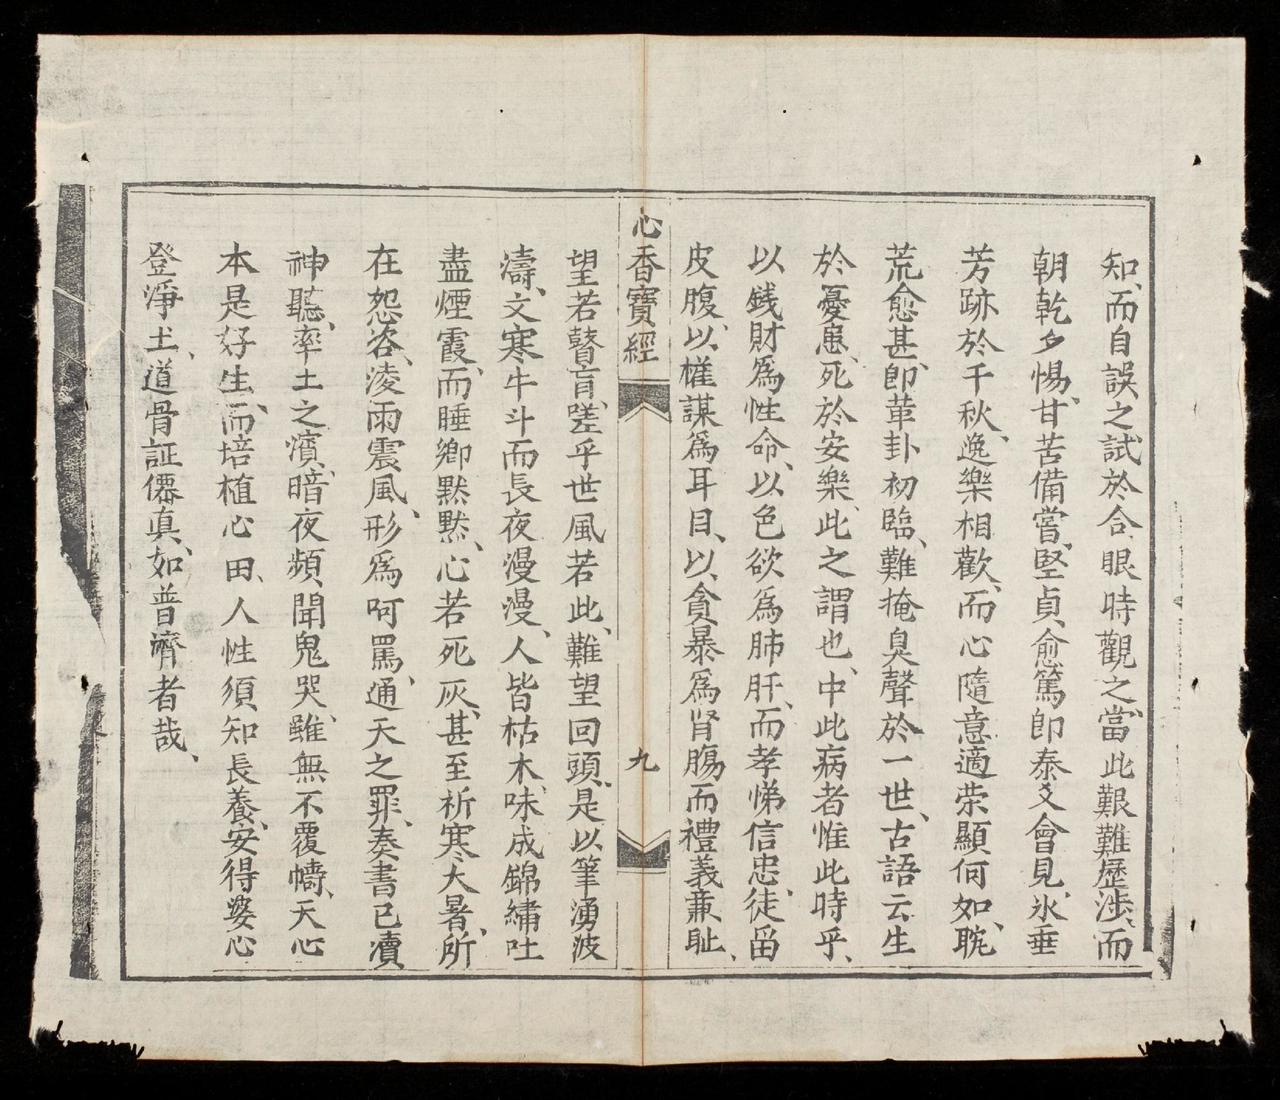 知、而自誤之試於合眼時觀之、當此艱難歷涉、而
朝乾夕惕、甘苦備嘗、堅貞愈篤、即泰爻會見、氷垂
芳跡於千秋、逸樂相歡、而心隨意適、荣顯何如、聣
荒愈甚、卽革卦初臨、難掩臭聲於一世、古語云生
於憂患、死於安樂、此之謂也、中此病者惟此時乎、
以銭財爲性命、以色欲爲肺肝、而孝悌信忠、徒畱
皮腹、以、權謀爲耳目、以、貪暴爲肾腸而禮義亷耻、
心香寶經
九
望若瞽盲、嗟乎世風若此、難望回頭、是以筆湧波
濤、文寒牛斗而長夜漫漫、人皆枯木、味成錦繡吐
盡煙霞、而睡鄉黙黙、心若死灰、甚至祈寒大暑、所
在怨咨、淩雨震風、形爲呵罵、通天之罪、奏書已凟
神聽、率土之濵、暗夜頻聞鬼哭、雖無不覆幬、天心
本是好生、而培植心田、人性須知長養、安得婆心
登淨土、道骨証僊真、如普濟者哉、